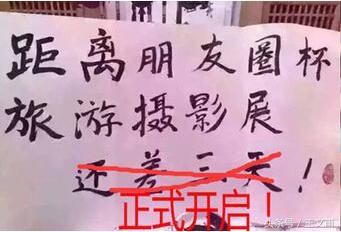 距离朋友圈杯
旅游摄影展
还差三天！
正式开启！
头条号/